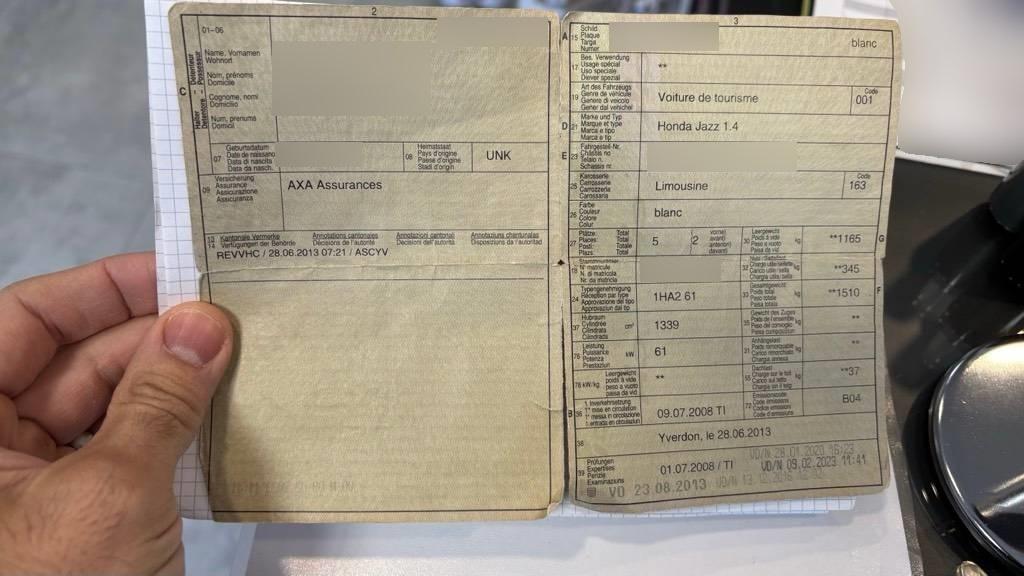 2
01-06
C
Halter - Détenteur
Detentore - Possessur
Name, Vornamen
Wohnort
Nom, prénoms
Domicile
Cognome, nomi
Domicilio
Num, prenums
Domicil
07
Geburtsdatum
Date de naissance
Data di nascita
Data da nasch.
08
Heimatstaat
Pays d'origine
Paese d'origine
Stadi d'origin
UNK
09
Versicherung
Assurance
Assicurazione
Assicuranza
AXA Assurances
13
14
Kantonale Vermerke
Verfügungen der Behörde
Annotations cantonales
Décisions de l'autorité
Annotazioni cantonali
Decisioni dell'autorità
Annotaziuns chantunalas
Disposiziuns da l'autoritad
REVVHC / 28.06.2013 07:21 / ASCYV
3
A
15
Schild
Plaque
Targa
Numer
blanc
17
Bes. Verwendung
Usage spécial
Uso speciale
Diever spezial
**
19
Art des Fahrzeugs
Genre de véhicule
Genere di veicolo
Gener dal vehichel
Voiture de tourisme
Code
001
D
21
Marke und Typ
Marque et type
Marca e tipo
Marca e tip
Honda Jazz 1.4
E
23
Fahrgestell-Nr.
Châssis no
Telaio n.
Schassis nr.
25
Karosserie
Carrosserie
Carrozzeria
Carossaria
Limousine
Code
163
26
Farbe
Couleur
Colore
Colur
blanc
27
Plätze: Total
Places: Total
Posti: Totale
Plazs: Total
5
2
vorne)
avant)
anteriori)
davant)
30
Leergewicht
Poids à vide
Peso a vuoto
Paisa da vid
kg
**1165
G
18
Stammnummer
N° matricule
N. di matricola
Nr. da matricla
Nutz-/Sattellast
Charge utile/sellette
Carico utile/sella
Chargia utila/sella
kg
**345
24
Typengenehmigung
Réception par type
Approvazione del tipo
Approvaziun dal tip
1HA2 61
33
Gesamtgewicht
Poids total
Peso totale
Paisa totala
kg
**1510
F
37
Hubraum
Cylindrée
Cilindrata
Cilindrada
cm³
1339
Gewicht des Zuges
Poids de l'ensemble
Peso del convoglio
Paisa cumposiziun
kg
**
76
Leistung
Puissance
Potenza
Prestaziun
kW
61
31
Anhängelast
Poids remorquable
Carico rimorchiato
Chargia annexa
kg
**
78 kW/kg
Leergewicht
poids à vide
peso a vuoto
paisa da vid
**
55
Dachlast
Charge sur le toit
Carico sul tetto
Chargia sin il tetg
kg
**37
B
36
1. Inverkehrsetzung
1re mise en circulation
1a messa in circolazione
1. entrada en circulaziun
09.07.2008 TI
72
Emissionscode
Code émissions
Codice emissioni
Code d'emissiuns
B04
38
Yverdon, le 28.06.2013
39
Prüfungen
Expertises
Perizie
Examinaziuns
01.07.2008 / TI
VD/N 28.01.2020 16:23
VD/N 09.02.2023 11:41
VD 23.08.2013